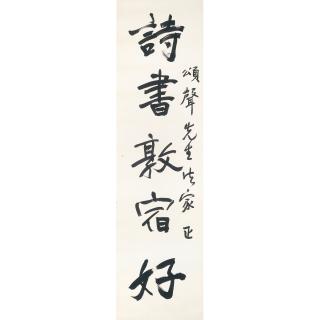 頌聲先生法家正
詩書敦宿好